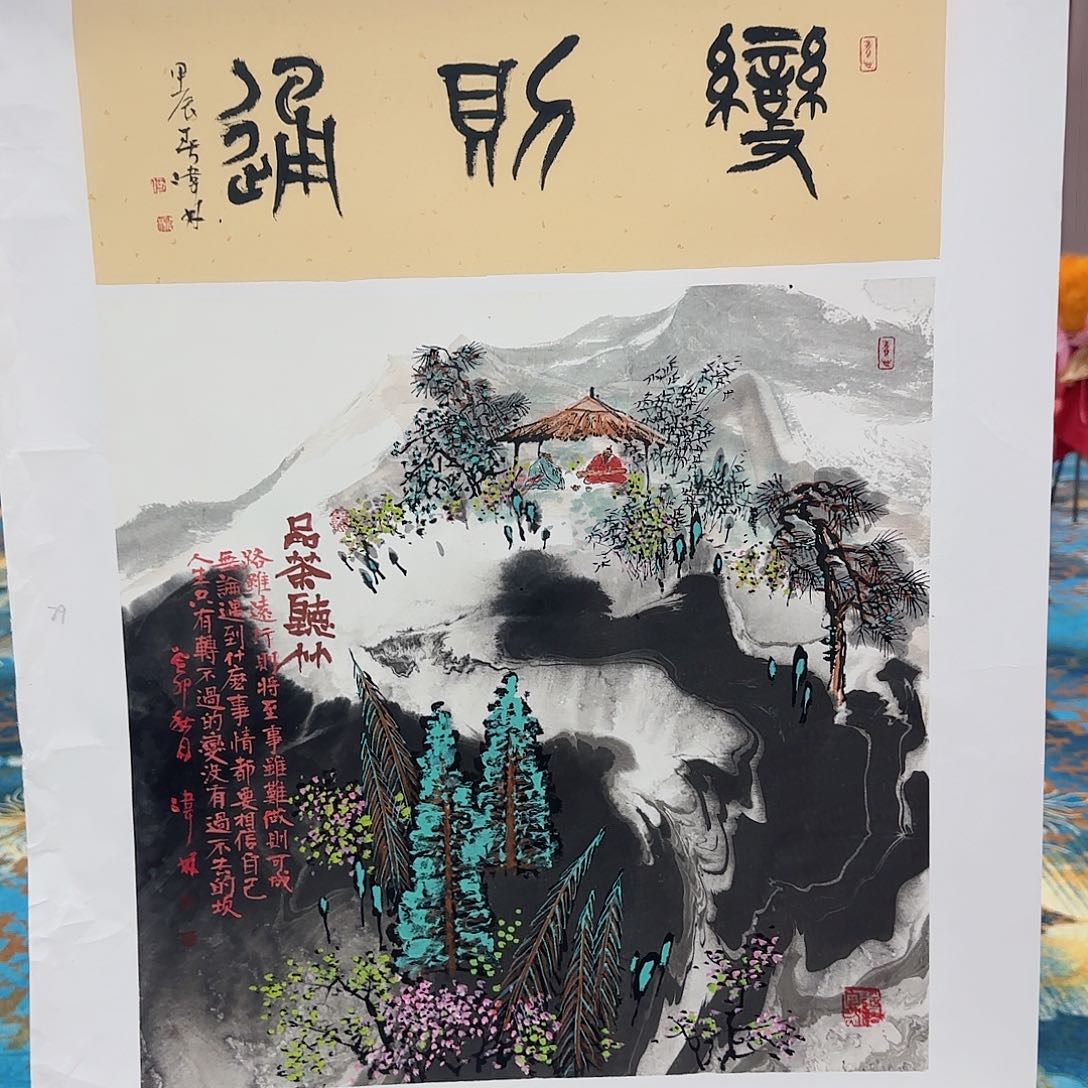 變則通
甲辰春
品茶聽竹
路雖遠行則將至事雖難做則可成
無論遇到什麽事情都要相信自己
人生只有轉不過的變没有過不去的坎
癸卯秋月